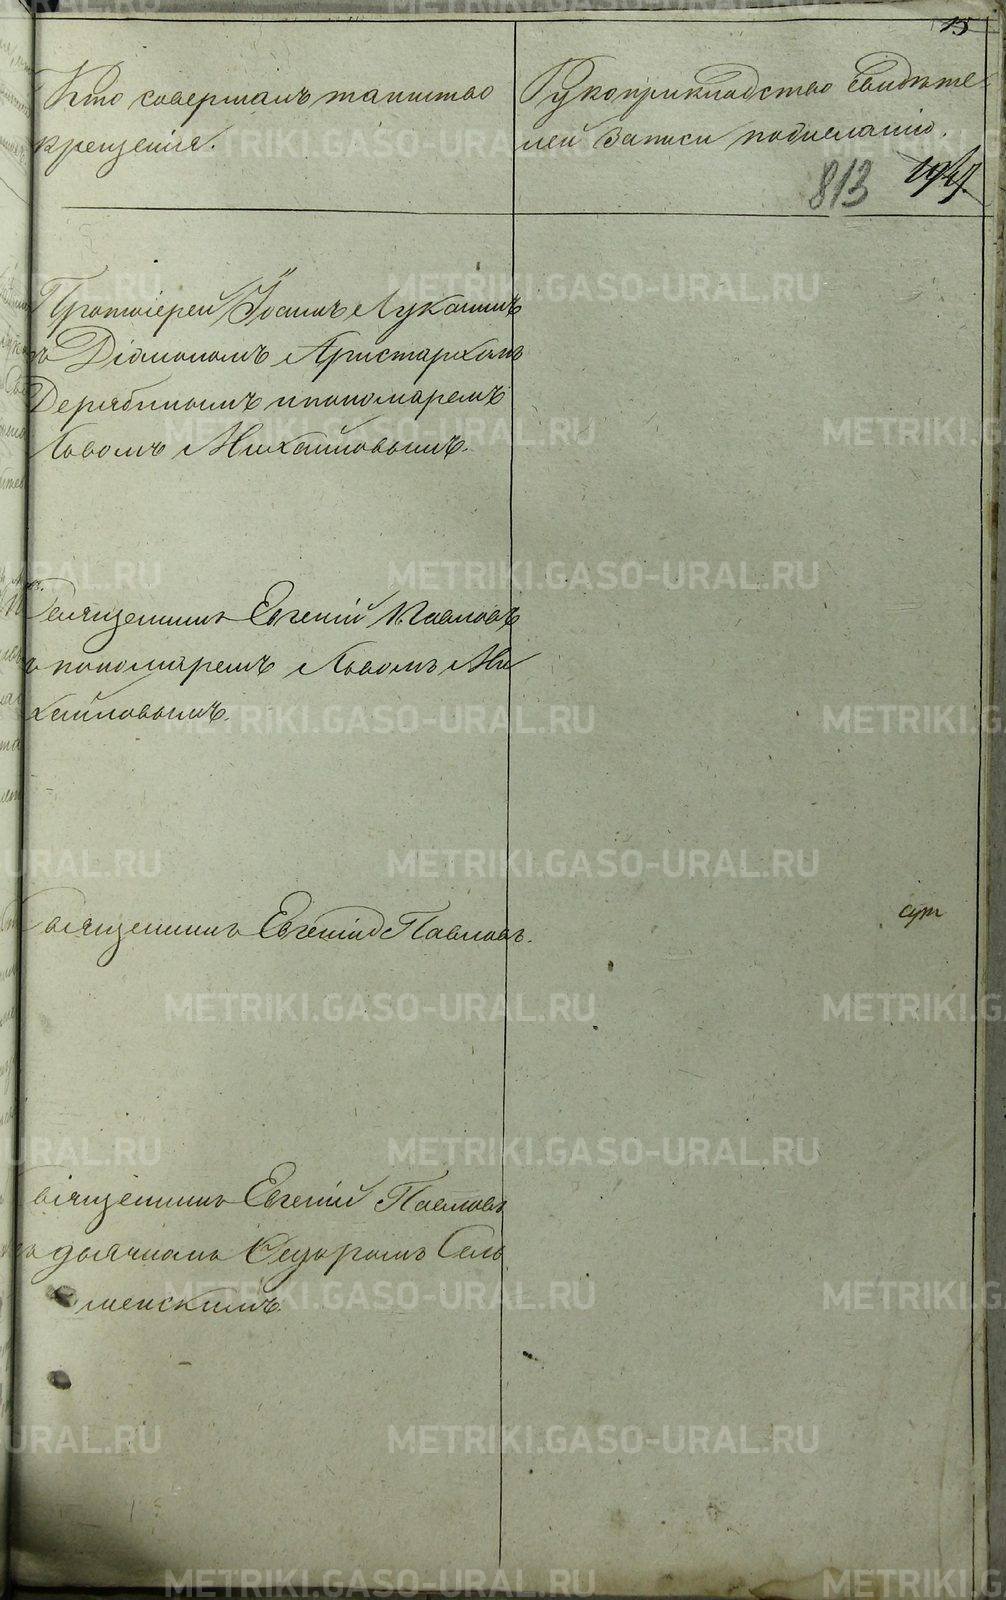 15
Кто совершалъ таинство
крещенія.
Рукоприкладство свидѣте-
лей записи по желанію.
813
Протоіерей Іоаннъ Лукаминъ
съ Діакономъ Аристархомъ
Дерябинымъ и пономаремъ
Львомъ Михайловымъ.
Священникъ Евгеній Павловъ
съ пономаремъ Львомъ Ми
хайловымъ.
Священникъ Евгеній Павловъ.
Священникъ Евгеній Павловъ
съ дьячкомъ Ѳедоромъ Сель
менскимъ.
METRIKI.GASO-URAL.RU